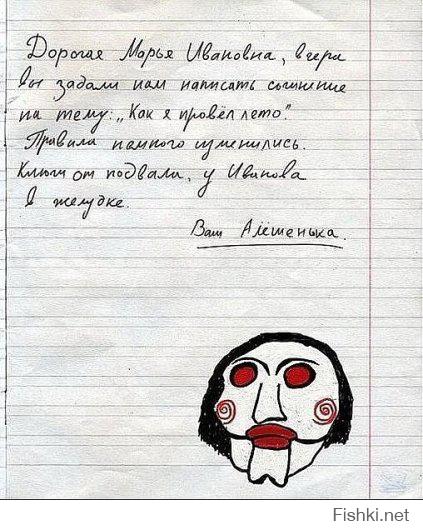 Дорогая Марья Ивановна, вчера
вы задали нам написать сочинение
на тему: „Как я провёл лето".
Правила немного изменились.
Ключи от подвала, у Иванова
в желудке.
Ваш Алёшенька.
Fishki.net